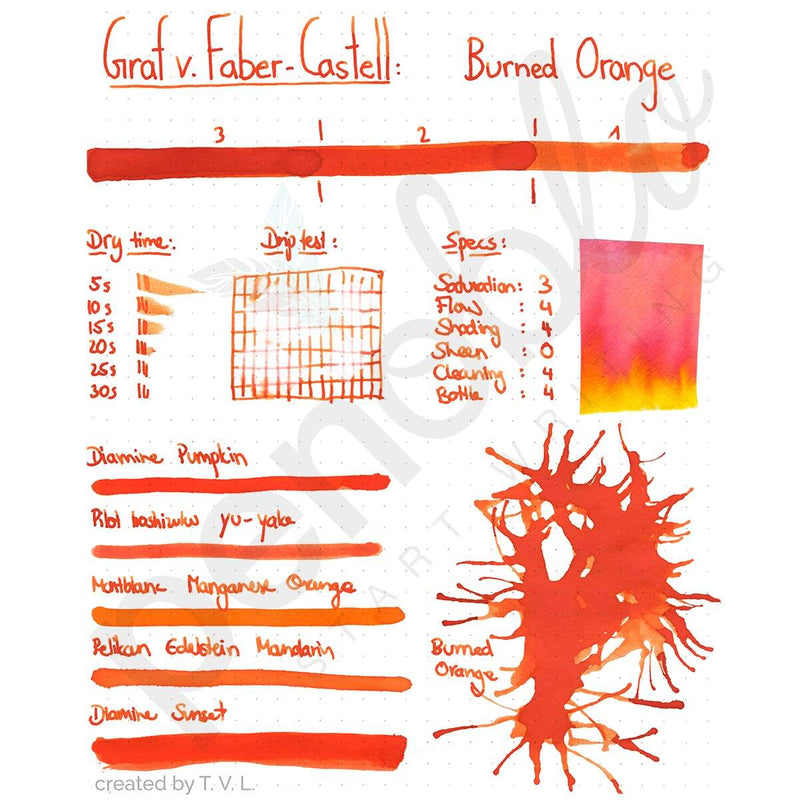 Graf v. Faber-Castell: Burned Orange
3 | 2 | 1
Dry time:
5s
10s
15s
20s
25s
30s
Drip test:
Specs:
Saturation: 3
Flow : 4
Shading : 4
Sheen : 0
Cleaning : 4
Bottle : 4
Diamine Pumpkin
Pilot Iroshizuku yu-yake
Montblanc Manganese Orange
Pelikan Edelstein Mandarin
Diamine Sunset
Burned
Orange
penoblo
START WRITING
created by T. V. L.